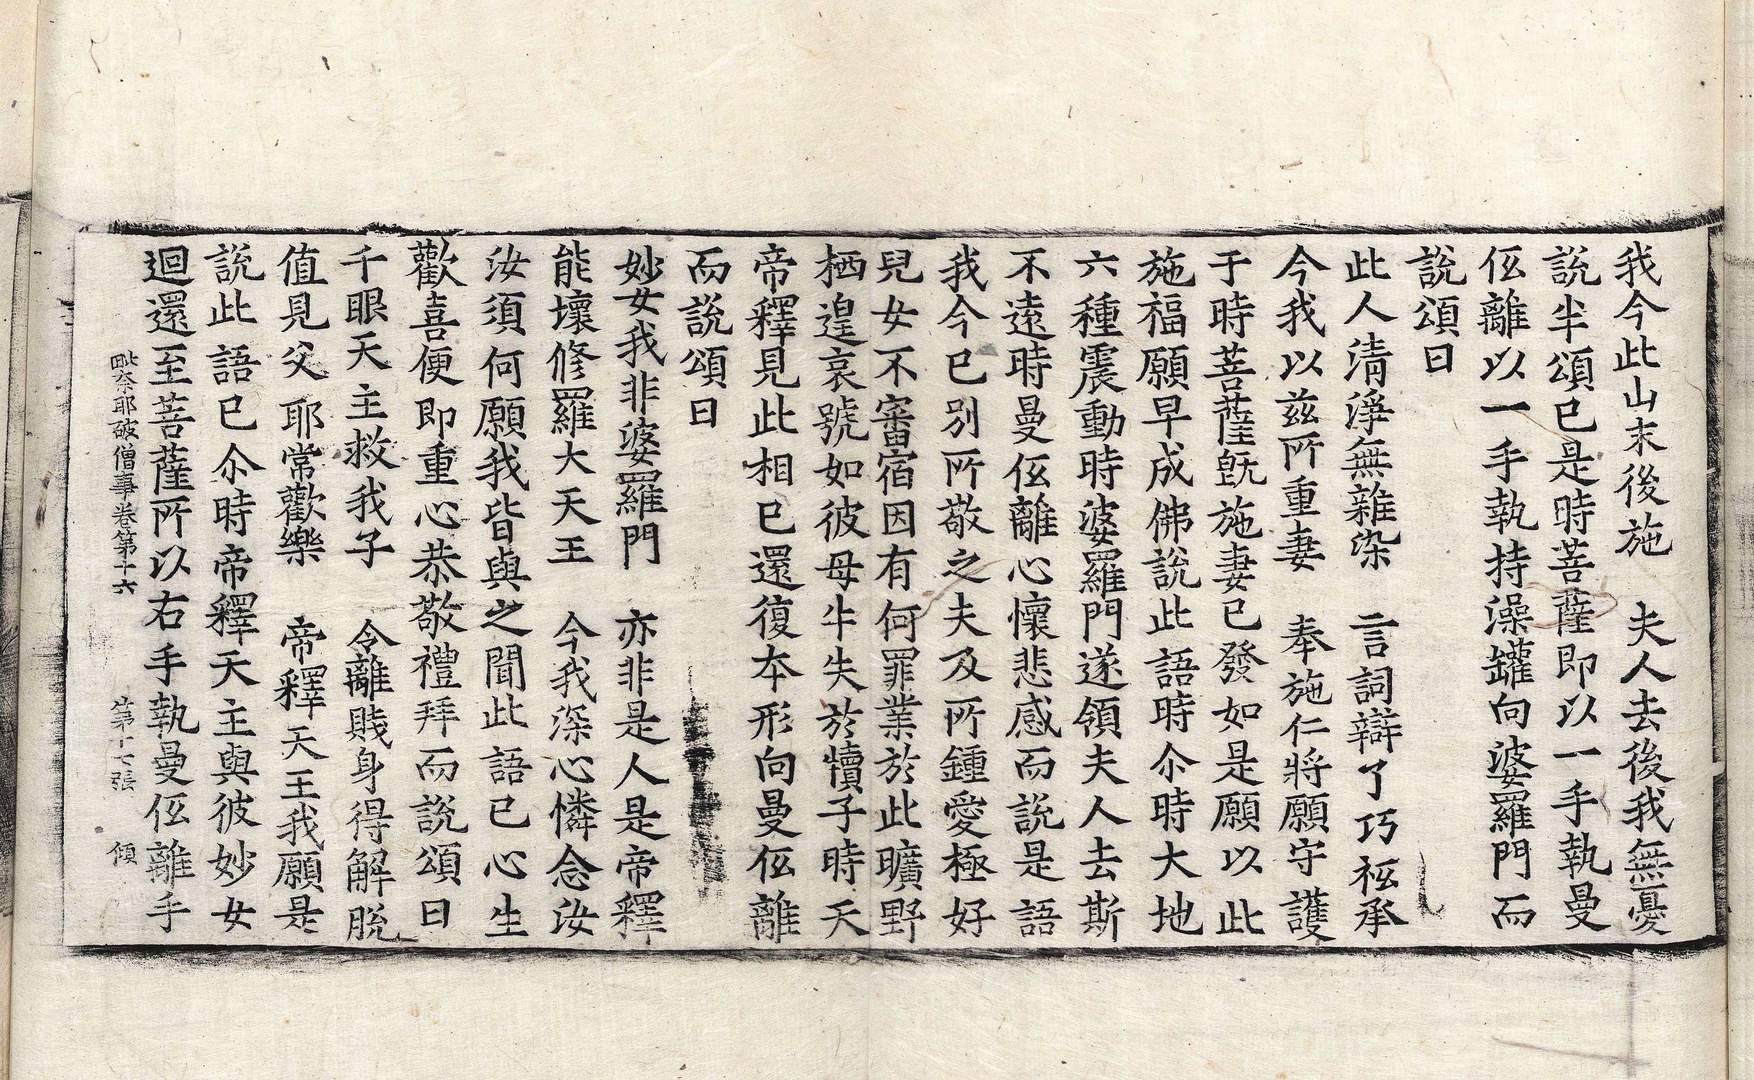 我今此山末後施　夫人去後我無憂
說半頌已是時菩薩即以一手執曼
伭離以一手執持澡罐向婆羅門而
說頌曰
此人淸淨無雜染　言詞辯了巧祗承
今我以兹所重妻　奉施仁將願守護
于時菩薩旣施妻已發如是願以此
施福願早成佛說此語時尒時大地
六種震動時婆羅門遂領夫人去斯
不遠時曼伭離心懷悲感而說是語
我今已別所敬之夫及所鍾愛極好
兒女不審宿因有何罪業於此曠野
栖遑哀號如彼母牛失於犢子時天
帝釋見此相已還復本形向曼伭離
而說頌曰
妙女我非婆羅門　亦非是人是帝釋
能壞修羅大天王　今我深心憐念汝
汝須何願我皆與之聞此語已心生
歡喜便即重心恭敬禮拜而說頌曰
千眼天主救我子　令離賤身得解脫
值見父耶常歡樂　帝釋天王我願是
說此語已尒時帝釋天主與彼妙女
迴還至菩薩所以右手執曼伭離手
毗奈耶破僧事卷第十六　第十七張　傾